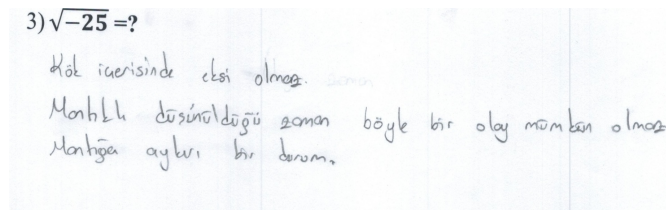 3) √-25 =?
Kök içerisinde eksi olmaz.
Mantıklı düşünüldüğü zaman böyle bir olay mümkün olmaz
Mantığa aykırı bir durum.